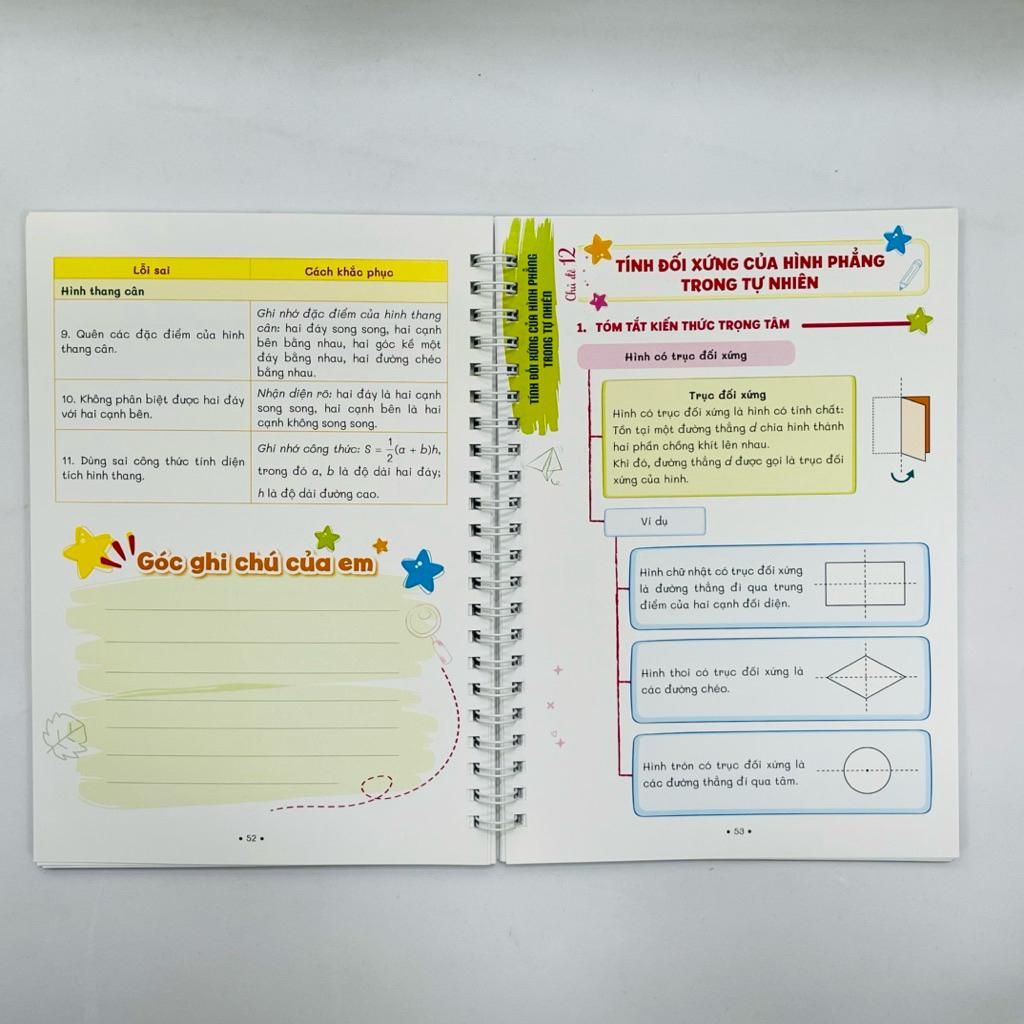 Lỗi sai
Cách khắc phục
Hình thang cân
9. Quên các đặc điểm của hình
thang cân.
Ghi nhớ đặc điểm của hình thang
cân: hai đáy song song, hai cạnh
bên bằng nhau, hai góc kề một
đáy bằng nhau, hai đường chéo
bằng nhau.
10. Không phân biệt được hai đáy
với hai cạnh bên.
Nhận diện rõ: hai đáy là hai cạnh
song song, hai cạnh bên là hai
cạnh không song song.
11. Dùng sai công thức tính diện
tích hình thang.
Ghi nhớ công thức: S = 1/2(a + b)h,
trong đó a, b là độ dài hai đáy;
h là độ dài đường cao.
Góc ghi chú của em
• 52 •
TÍNH ĐỐI XỨNG CỦA HÌNH PHẲNG
TRONG TỰ NHIÊN
Chủ đề 12
TÍNH ĐỐI XỨNG CỦA HÌNH PHẲNG
TRONG TỰ NHIÊN
1. TÓM TẮT KIẾN THỨC TRỌNG TÂM
Hình có trục đối xứng
Trục đối xứng
Hình có trục đối xứng là hình có tính chất:
Tồn tại một đường thẳng d chia hình thành
hai phần chồng khít lên nhau.
Khi đó, đường thẳng d được gọi là trục đối
xứng của hình.
Ví dụ
Hình chữ nhật có trục đối xứng
là đường thẳng đi qua trung
điểm của hai cạnh đối diện.
Hình thoi có trục đối xứng là
các đường chéo.
Hình tròn có trục đối xứng là
các đường thẳng đi qua tâm.
• 53 •